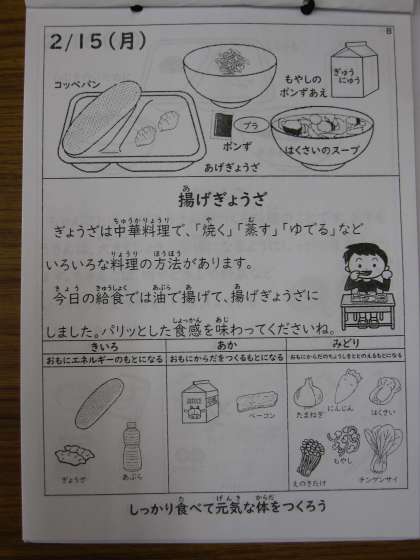 2/15(月)
B
コッペパン
もやしの
ポンずあえ
ぎゅう
にゅう
プラ
ポンず
はくさいのスープ
あげぎょうざ
揚げぎょうざ
ぎょうざは中華料理で、「焼く」「蒸す」「ゆでる」など
いろいろな料理の方法があります。
今日の給食では油で揚げて、揚げぎょうざに
しました。パリッとした食感を味わってくださいね。
きいろ
おもにエネルギーのもとになる
ぎょうざ
あぶら
あか
おもにからだをつくるもとになる
ベーコン
みどり
おもにからだのちょうしをととのえるもとになる
たまねぎ
にんじん
はくさい
えのきたけ
もやし
チンゲンサイ
しっかり食べて元気な体をつくろう